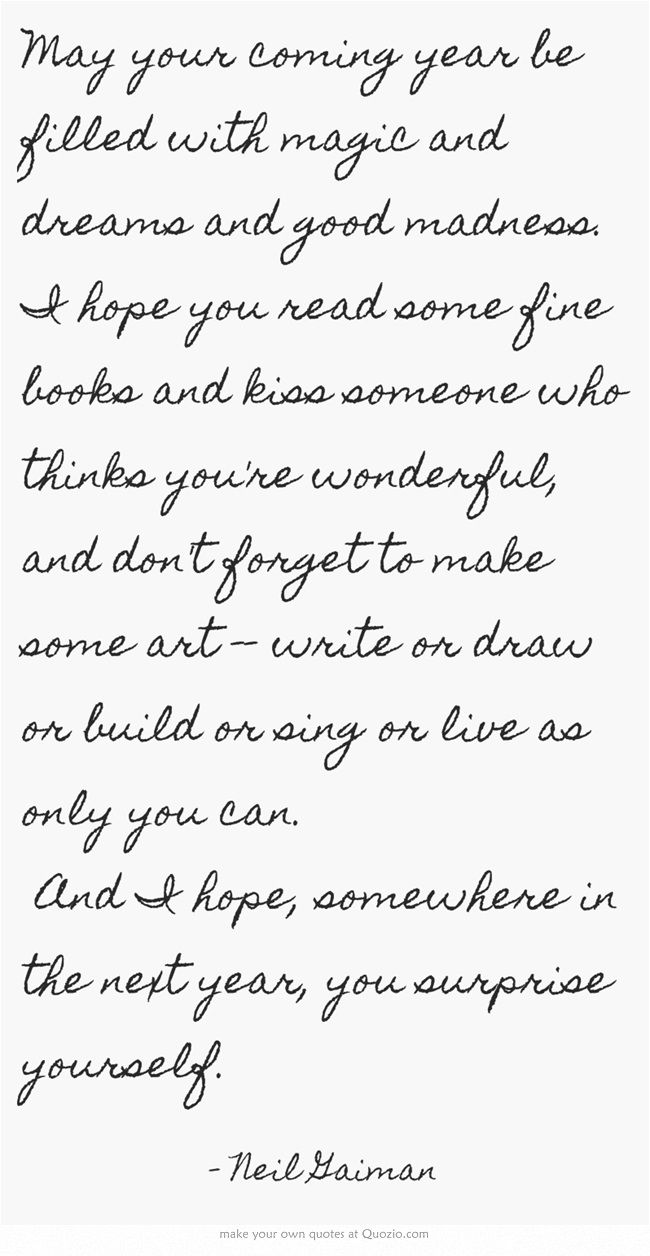 May your coming year be
filled with magic and
dreams and good madness.
I hope you read some fine
books and kiss someone who
thinks you're wonderful,
and don't forget to make
some art -- write or draw
or build or sing or live as
only you can.
And I hope, somewhere in
the next year, you surprise
yourself.
- Neil Gaiman
make your own quotes at Quozio.com